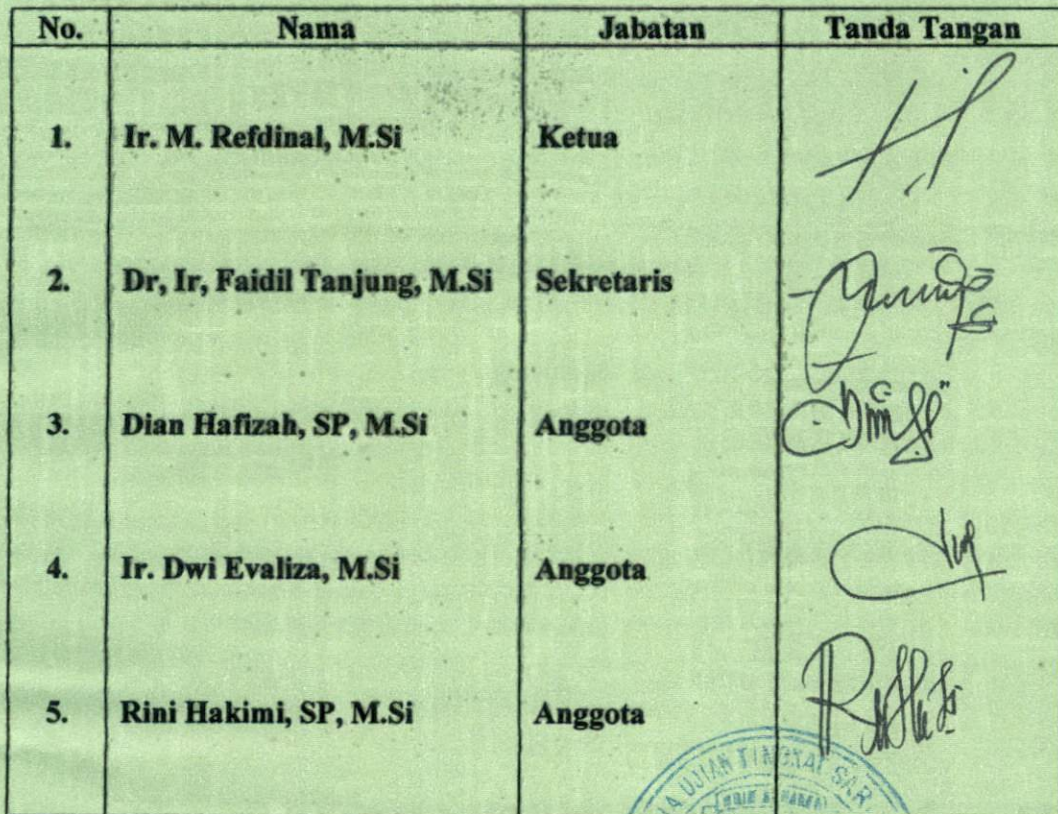 No. Nama Jabatan Tanda Tangan
1. Ir. M. Refdinal, M.Si Ketua
2. Dr, Ir, Faidil Tanjung, M.Si Sekretaris
3. Dian Hafizah, SP, M.Si Anggota
4. Ir. Dwi Evaliza, M.Si Anggota
5. Rini Hakimi, SP, M.Si Anggota
UJIAN TINGKAT SAR